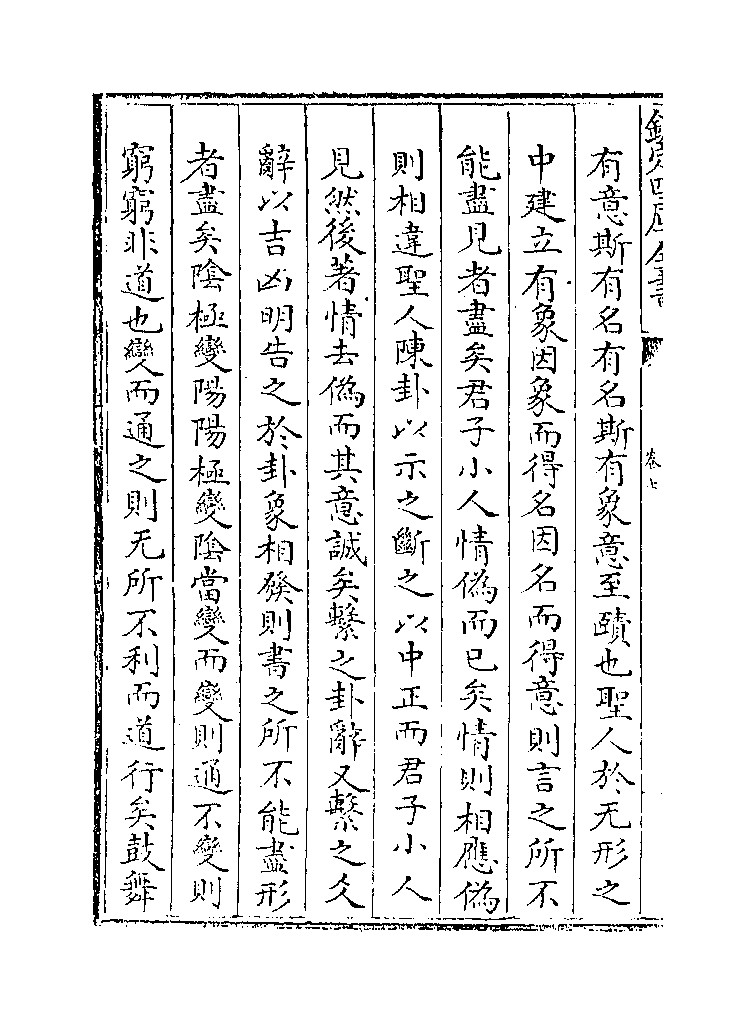 欽定四庫全書
卷七
有意斯有名有名斯有象意至賾也聖人於无形之
中建立有象因象而得名因名而得意則言之所不
能盡見者盡矣君子小人情偽而已矣情則相應偽
則相違聖人陳卦以示之斷之以中正而君子小人
見然後著情去偽而其意誠矣繫之卦辭又繫之爻
辭以吉凶明告之於卦象相發則書之所不能盡形
者盡矣陰極變陽陽極變陰當變而變則通不變則
窮窮非道也變而通之則无所不利而道行矣鼓舞